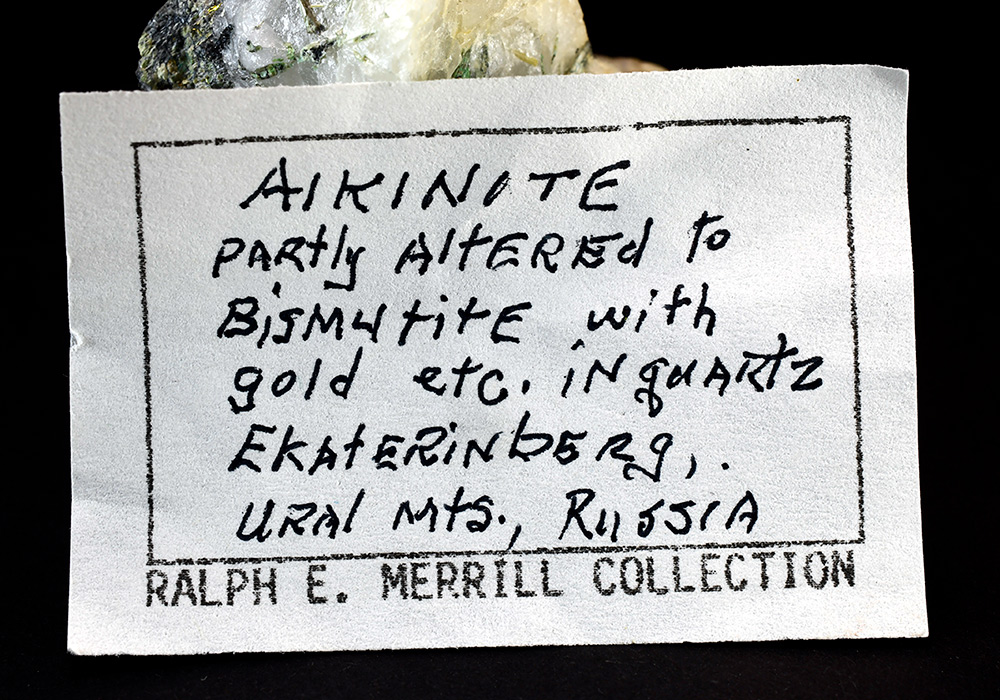 AIKINITE
PARtly AltEREd to
BisMutitE with
gold etc. iN quARtz
EKAtERiNbERg, .
URAl Mts., RussiA
RALPH E. MERRILL COLLECTION